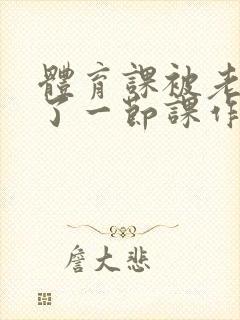 體育課被老
了一節課作
詹大悲